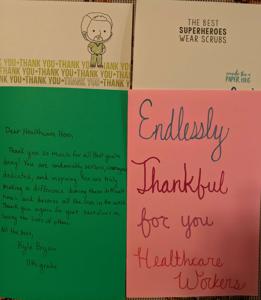 THANK YOU THANK YOU THANK YOU
THE BEST
SUPERHEROES
WEAR SCRUBS
Dear Healthcare Hero,
Thank you so much for all that you're
doing! You are undeniably serious, courageous,
dedicated, and inspiring. You are truly
making a difference during these difficult
times and deserve all the love in the world.
Thank you again for your sacrifices in
saving the lives of others.
All the best,
Kyle Bryan
11th grade
Endlessly
Thankful
for you
Healthcare
Workers